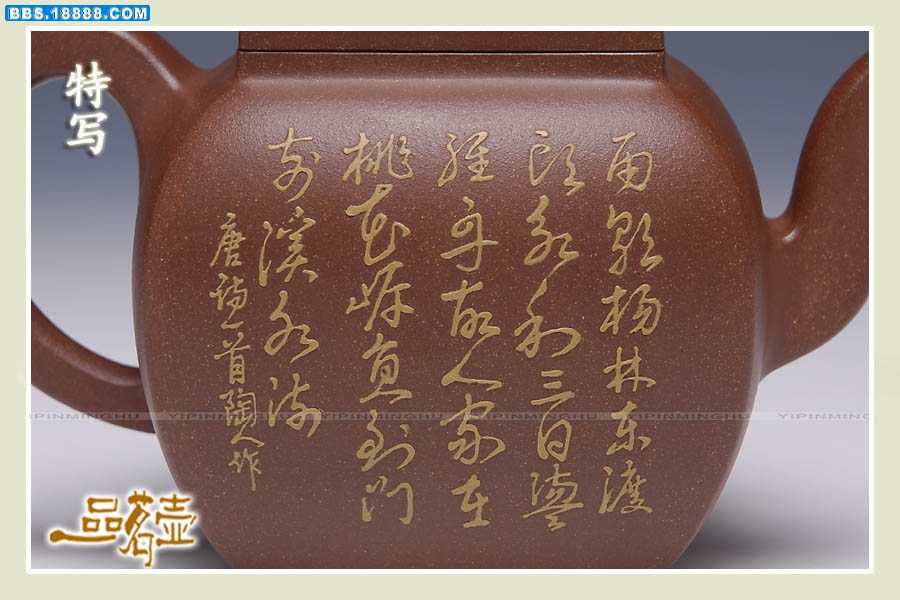 BBS.18888.COM
特写
雨歇杨林东渡
头永和三日盪
轻舟故人家在
桃花岸直到门
前溪水流
唐诗一首陶人作
YIPINMINGHU
YIPINMINGHU
一品茗壶